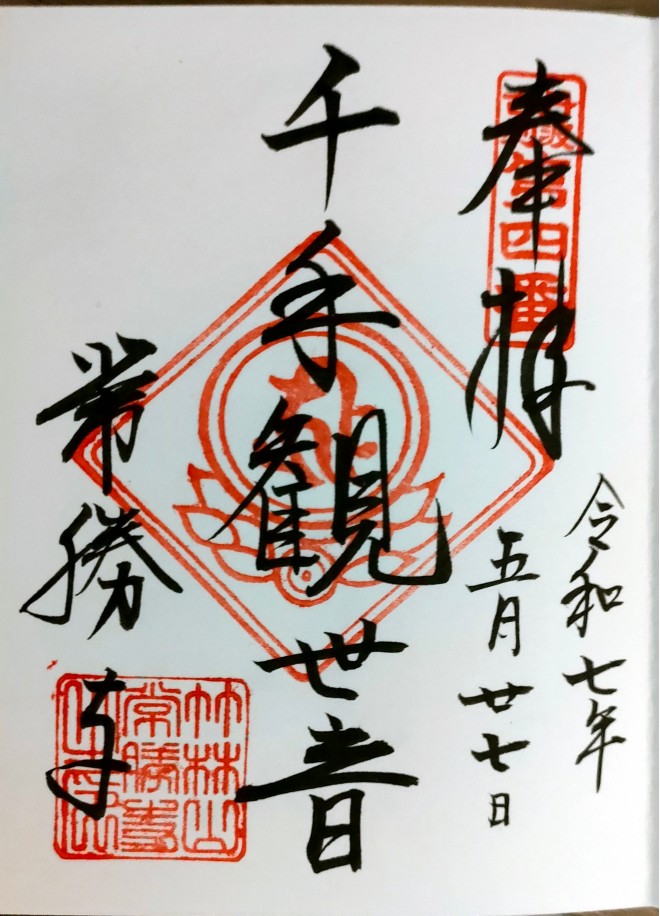 奉拝
第四番
令和七年
五月廿七日
千手観世音
常勝寺
竹林山
常勝寺